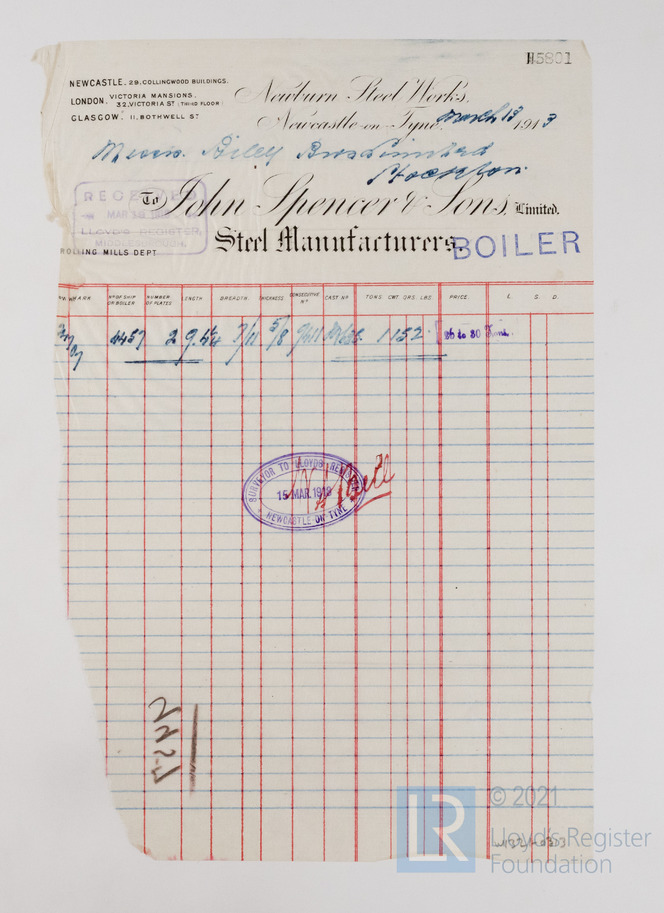 15801
NEWCASTLE. 29. COLLINGWOOD BUILDINGS.
LONDON. VICTORIA MANSIONS, 32, VICTORIA ST (THIRD FLOOR)
GLASGOW. 11, BOTHWELL ST
Newburn Steel Works,
Newcastle-on-Tyne, March 13 1913
Messrs. Riley Bros Limited
Stockton.
RECEIVED
MAR
LLOYD'S REGISTER,
MIDDLESBROUGH.
To John Spencer & Sons, Limited.
Steel Manufacturers,
BOILER
ROLLING MILLS DEPT
MARK. Nº OF SHIP OR BOILER NUMBER OF PLATES LENGTH BREADTH. THICKNESS CONSECUTIVE Nº CAST Nº TONS CWT QRS. LBS. PRICE. £ S. D.
4457 2 5/8 1152 26 to 30 Tons.
SURVEYOR TO LLOYDS REGISTER
15 MAR. 1913
NEWCASTLE ON TYNE
LR
© 2021
Lloyd's Register
Foundation